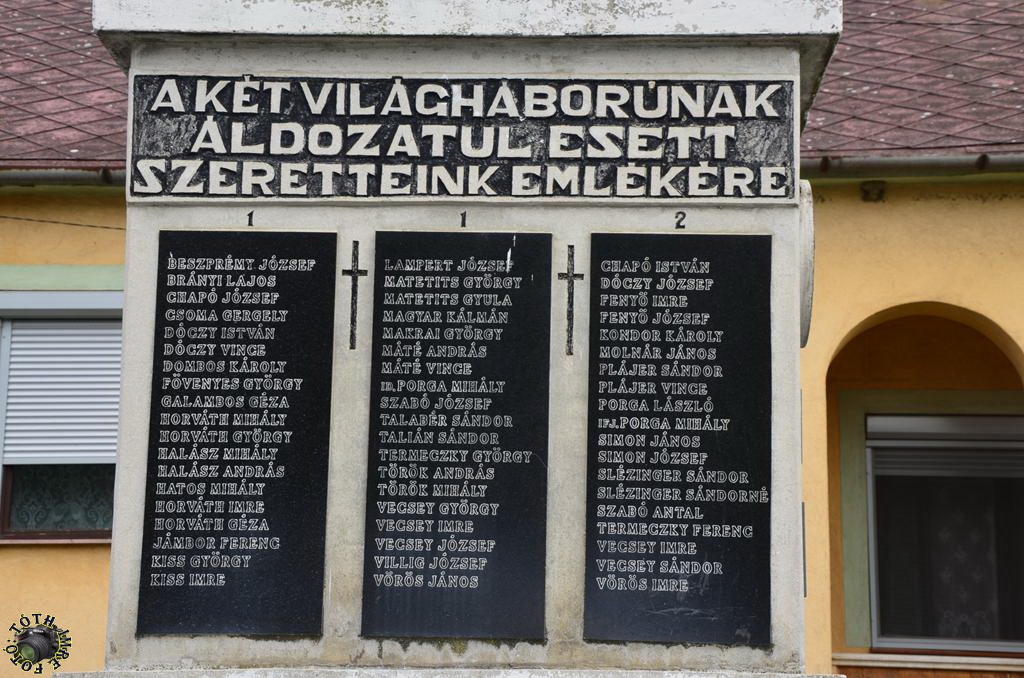 A KÉT VILÁGHÁBORÚNAK
ÁLDOZATUL ESETT
SZERETTEINK EMLÉKÉRE
1
BESZPRÉMY JÓZSEF
BRÁNYI LAJOS
CHAPÓ JÓZSEF
CSOMA GERGELY
DÓCZY ISTVÁN
DÓCZY VINCE
DOMBOS KÁROLY
FÖVENYES GYÖRGY
GALAMBOS GÉZA
HORVÁTH MIHÁLY
HORVÁTH GYÖRGY
HALÁSZ MIHÁLY
HALÁSZ ANDRÁS
HATOS MIHÁLY
HORVÁTH IMRE
HORVÁTH GÉZA
JÁMBOR FERENC
KISS GYÖRGY
KISS IMRE
1
LAMPERT JÓZSEF
MATETITS GYÖRGY
MATETITS GYULA
MAGYAR KÁLMÁN
MAKRAI GYÖRGY
MÁTÉ ANDRÁS
MÁTÉ VINCE
ID. PORGA MIHÁLY
SZABÓ JÓZSEF
TALABÉR SÁNDOR
TALIÁN SÁNDOR
TERMECZKY GYÖRGY
TÖRÖK ANDRÁS
TÖRÖK MIHÁLY
VECSEY GYÖRGY
VECSEY IMRE
VECSEY JÓZSEF
VILLIG JÓZSEF
VÖRÖS JÁNOS
2
CHAPÓ ISTVÁN
DÓCZY JÓZSEF
FENYŐ IMRE
FENYŐ JÓZSEF
KONDOR KÁROLY
MOLNÁR JÁNOS
PLÁJER SÁNDOR
PLÁJER VINCE
PORGA LÁSZLÓ
IFJ. PORGA MIHÁLY
SIMON JÁNOS
SIMON JÓZSEF
SLÉZINGER SÁNDOR
SLÉZINGER SÁNDORNÉ
SZABÓ ANTAL
TERMECZKY FERENC
VECSEY IMRE
VECSEY SÁNDOR
VÖRÖS IMRE
TÓTH IMRE FOTÓ